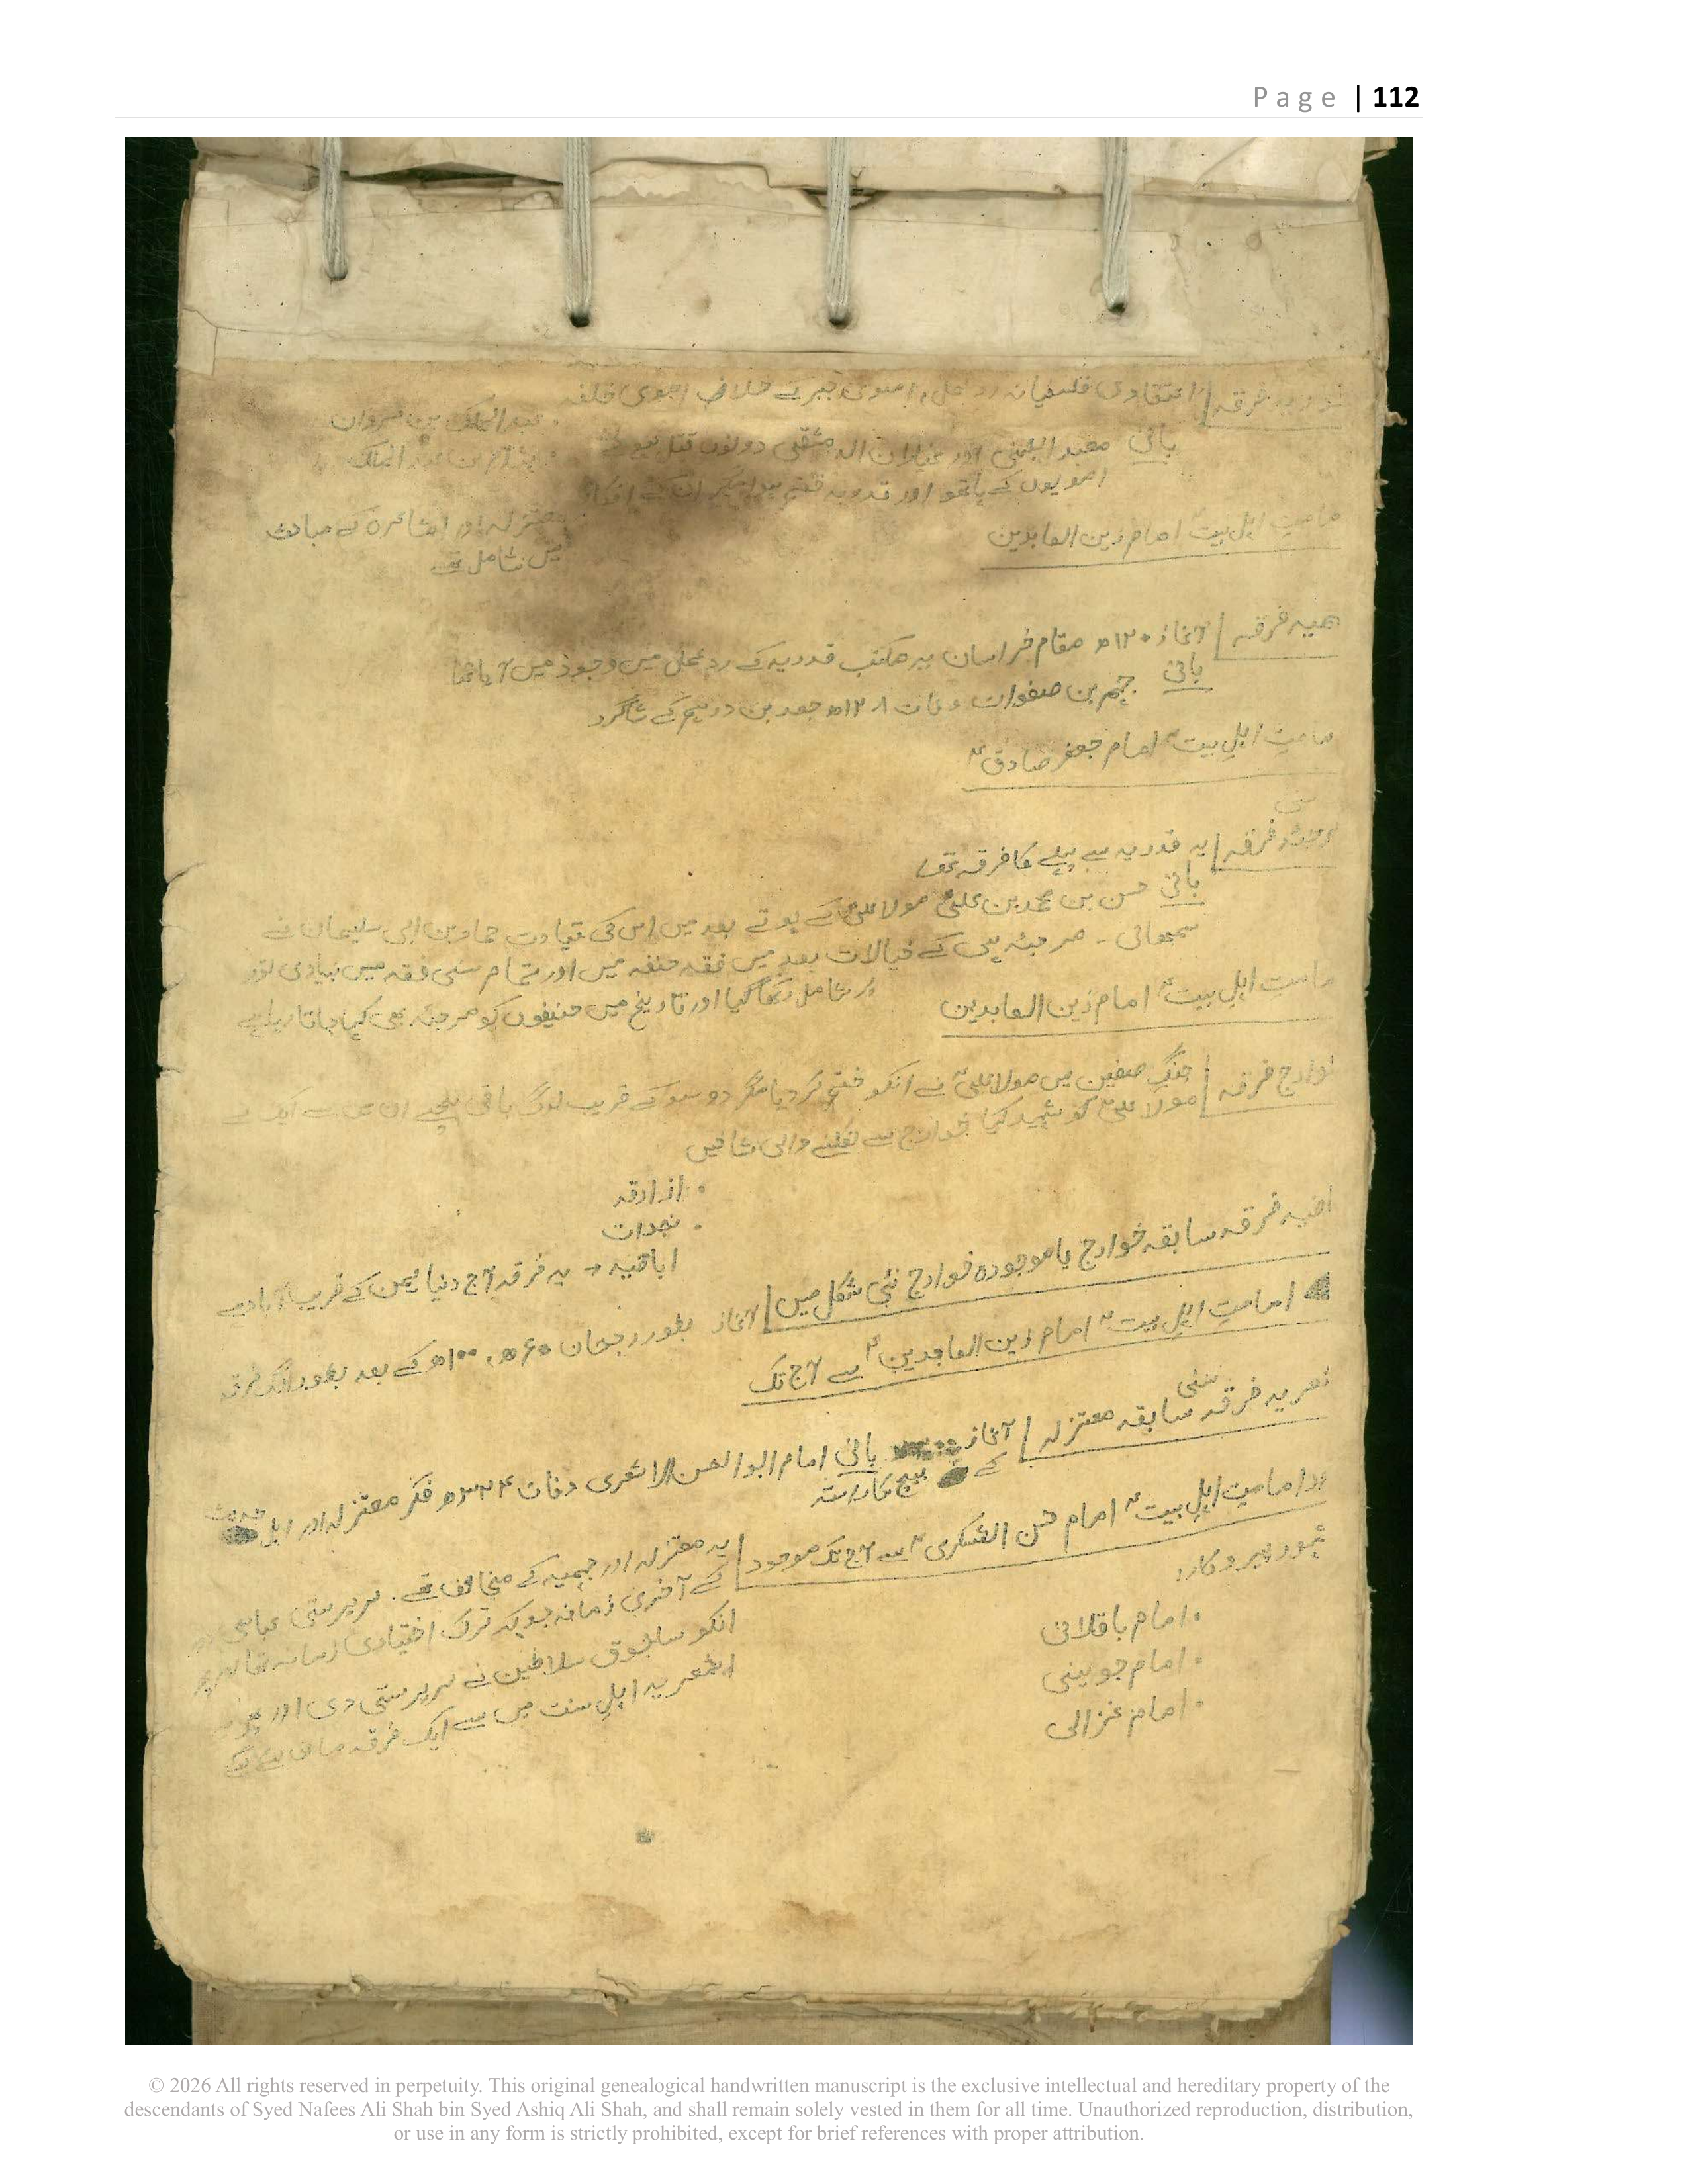 Page | 112
فرقہ | اعتقادی فلسفیانہ رد عمل، اموی جبر کے خلاف اموی خلفہ
· عبدالملک بن مروان
بانی معبد الجہنی اور غیلان الدمشقی دونوں قتل ہوئے
· ہشام بن عبد الملک
امویوں کے ہاتھو اور قدریہ
معتزلہ اور اشاعرہ کے مباحث
میں شامل تھے
امامتِ اہلِ بیت امام زین العابدین
جہمیہ فرقہ | آغاز ۱۲۰ھ مقام خراسان یہ مکتب قدریہ کے رد عمل میں وجود میں آیا تھا
بانی جہم بن صفوان وفات ۱۲۸ھ جعد بن درہم کے شاگرد
امامتِ اہلِ بیتؑ امام جعفر صادقؑ
مرجئہ فرقہ | یہ قدریہ سے پہلے کا فرقہ تھا
بانی حسن بن محمد بن علیؑ مولا علیؑ کے پوتے بعد میں اس کی قیادت حماد بن ابی سلیمان نے
سمبھالی - مرجئہ ہی کے خیالات بعد میں فقہ حنفہ میں اور تمام سنی فقہ میں بنیادی طور
پر شامل رکھا گیا اور تاریخ میں حنیفوں کو مرجئہ بھی کہا جاتا رہا ہے
امامتِ اہلِ بیتؑ امام زین العابدین
خوارج فرقہ | جنگِ صفین میں مولا علیؑ نے انکو ختم کر دیا مگر دو سو کے قریب لوگ باقی بچے ان میں سے ایک نے
مولا علیؑ کو شہید کیا خوارج سے نکلنے والی شاخیں
· ازارقہ
· نجدات
اباضیہ → یہ فرقہ آج دنیا یمن کے قریب آباد ہے
فرقہ سابقہ خوارج یا موجودہ خوارج نئی شکل میں | آغاز بطور رجحان ۶۰ھ، ۱۰۰ھ کے بعد بطور الگ فرقہ
امامتِ اہلِ بیتؑ امام زین العابدینؑ سے آج تک
سنی
اشعریہ فرقہ سابقہ معتزلہ | آغاز بانی امام ابوالحسن الاشعری وفات ۳۲۴ھ فکر معتزلہ اور اہل حدیث
کے بیچ کا راستہ
امامتِ اہلِ بیتؑ امام حسن العسکریؑ سے آج تک موجود | یہ معتزلہ اور جہمیہ کے مخالف تھے. سرپرستی عباسی
کے آخری زمانہ جو کہ ترک اختیاری زمانہ تھا
انکو سلجوق سلاطین نے سرپرستی دی اور
اشعریہ اہلِ سنت میں سے ایک فرقہ
پیروکار:
· امام باقلانی
· امام جوینی
· امام غزالی
© 2026 All rights reserved in perpetuity. This original genealogical handwritten manuscript is the exclusive intellectual and hereditary property of the
descendants of Syed Nafees Ali Shah bin Syed Ashiq Ali Shah, and shall remain solely vested in them for all time. Unauthorized reproduction, distribution,
or use in any form is strictly prohibited, except for brief references with proper attribution.